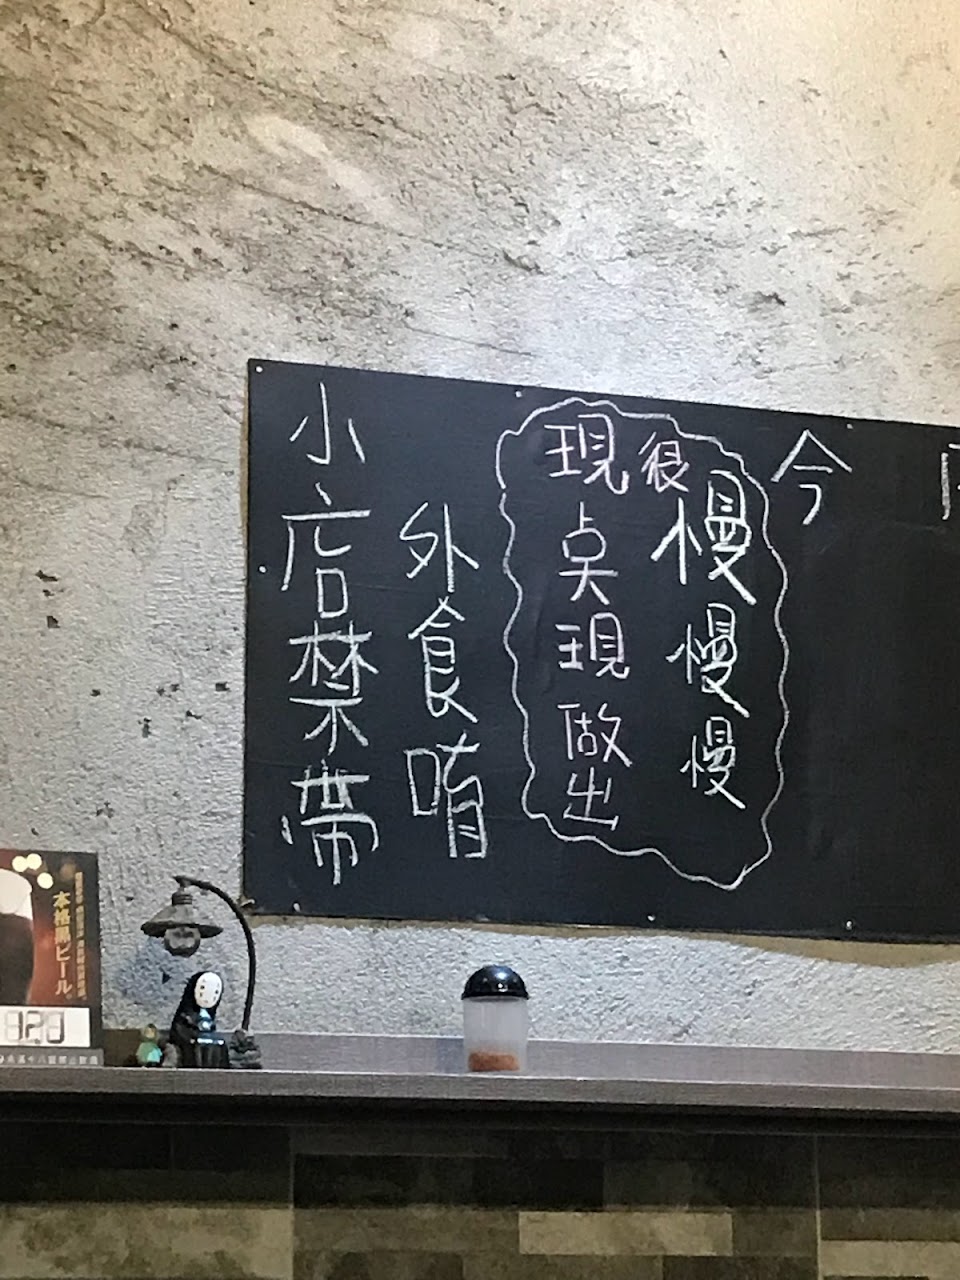 今
很慢慢慢
現点現做出
外食唷
小店禁帶
本格黒ビール
120